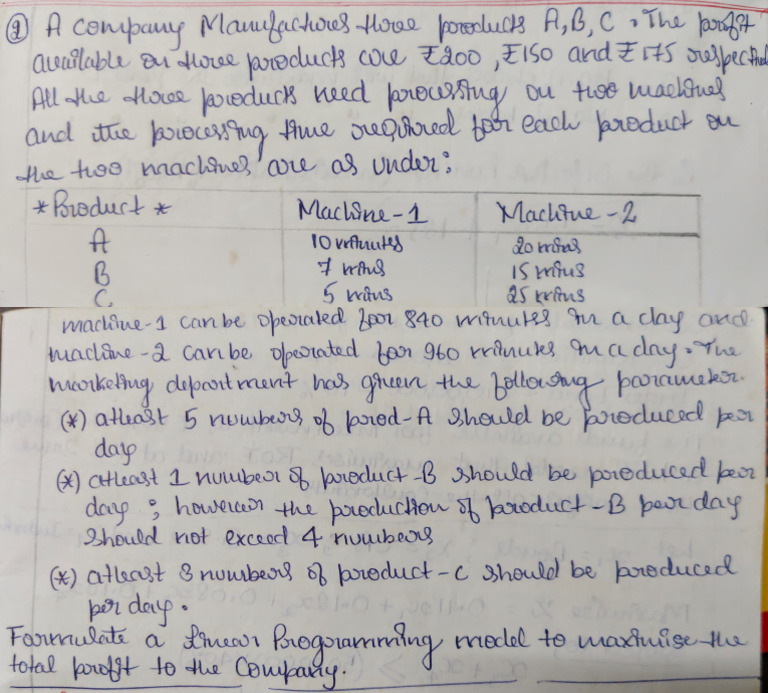 ① A company Manufactures three products A, B, C. The profit
available on three products are ₹200, ₹150 and ₹175
All the three products need processing on two machines
and the processing time required for each product on
the two machines are as under:
*Product * Machine-1 Machine-2
A 10 minutes 20 mins
B 7 mins 15 mins
C 5 mins 25 mins
machine-1 can be operated for 840 minutes in a day and
machine-2 can be operated for 960 minutes in a day. The
marketing department has given the following parameter.
(*) atleast 5 numbers of prod-A should be produced per
day
(*) atleast 1 number of product-B should be produced per
day; however the production of product-B per day
should not exceed 4 numbers
(*) atleast 3 numbers of product-C should be produced
per day.
Formulate a Linear Programming model to maximise the
total profit to the Company.